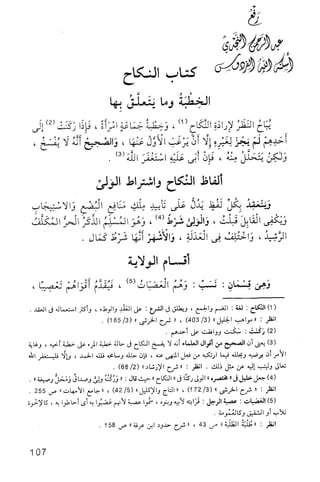 رفع
عبد الرحمن النجدي
أسكنه الله الفردوس
كتاب النكاح
الخطبة وما يتعلق بها
يُبَاحُ النَّظَرُ لِإرَادَةِ النِّكَاحِ (1) ، وَخِطْبَةُ جَمَاعَةٍ امْرَأَةً ، فَإِذَا رَكَنَتْ (2) إِلَى
أَحَدِهِمْ لَمْ يَجُزْ لِغَيْرِهِ إِلَّا أَنْ يَرْغَبَ الْأَوَّلُ عَنْهَا ، وَالصَّحِيحُ أَنَّهُ لَا يُفْسَخُ ،
وَلَكِنْ يَتَحَلَّلُ مِنْهُ ، فَإِنْ أَبَى عَلَيْهِ اسْتَغْفَرَ اللهَ (3) .
ألفاظ النكاح واشتراط الولي
وَيَنْعَقِدُ بِكُلِّ لَفْظٍ يَدُلُّ عَلَى تَأْبِيدِ مِلْكِ مَنَافِعِ الْبُضْعِ وَالاسْتِيجَابِ
وَيَكْفِي الْقَابِلَ قَبِلْتُ ، وَالْوَلِيُّ شَرْطٌ (4) ، وَهُوَ الْمُسْلِمُ الذَّكَرُ الْحُرُّ الْمُكَلَّفُ
الرَّشِيدُ ، وَاخْتُلِفَ فِي الْعَدَالَةِ ، وَالْأَشْهَرُ أَنَّهَا شَرْطُ كَمَالٍ .
أقسام الولاية
وَهِيَ قِسْمَانِ : نَسَبٌ : وَهُمُ الْعَصَبَاتُ (5) ، فَيُقَدَّمُ أَقْوَاهُمْ تَعْصِيبًا ،
(1) النكاح : لغة : الضم والجمع ، ويطلق في الشرع : على العَقْدِ والوطء ، وأكثر استعماله في العقد .
انظر : « مواهب الجليل » (403/3) ، « شرح الخرشي » (165/3) .
(2) رَكَنَتْ : سَكَنت ووافقت على أحدهم .
(3) يعني أن الصحيح من أقوال العلماء أنه لا يفسخ النكاح في حالة خطبة المرء على خطبة أخيه ، وغاية
الأمر أن يرضيه ويحلله فيما ارتكبه من فعل المنهي عنه ، فإن حلله وسامحه فلله الحمد ، وإلا فليستغفر الله
تعالى وليتب إليه عن مثل ذلك . انظر : « شرح الإرشاد » (66/2) .
(4) جعل خليل في « مختصره » الولي ركنًا في « النكاح » حيث قال : « وركنُهُ وليٌّ وصداقٌ ومَحَلٌّ وصيغة » .
انظر : « شرح الخرشي » (172/3) ، « التاج والإكليل » (42/5) ، « جامع الأمهات » ص 255 .
(5) العَصَبات : عصبة الرجل : قَرَابته لأبيه وبنوه ، سُمُّوا عصبةً لأنهم عَصَبوا به أي أحاطوا به ، كالإخوة
للأب أو الشقيق وكالعُمومة .
انظر : « طُلْبَة الطَّلَبة » ص 43 ، « شرح حدود ابن عرفة » ص 158 .
107